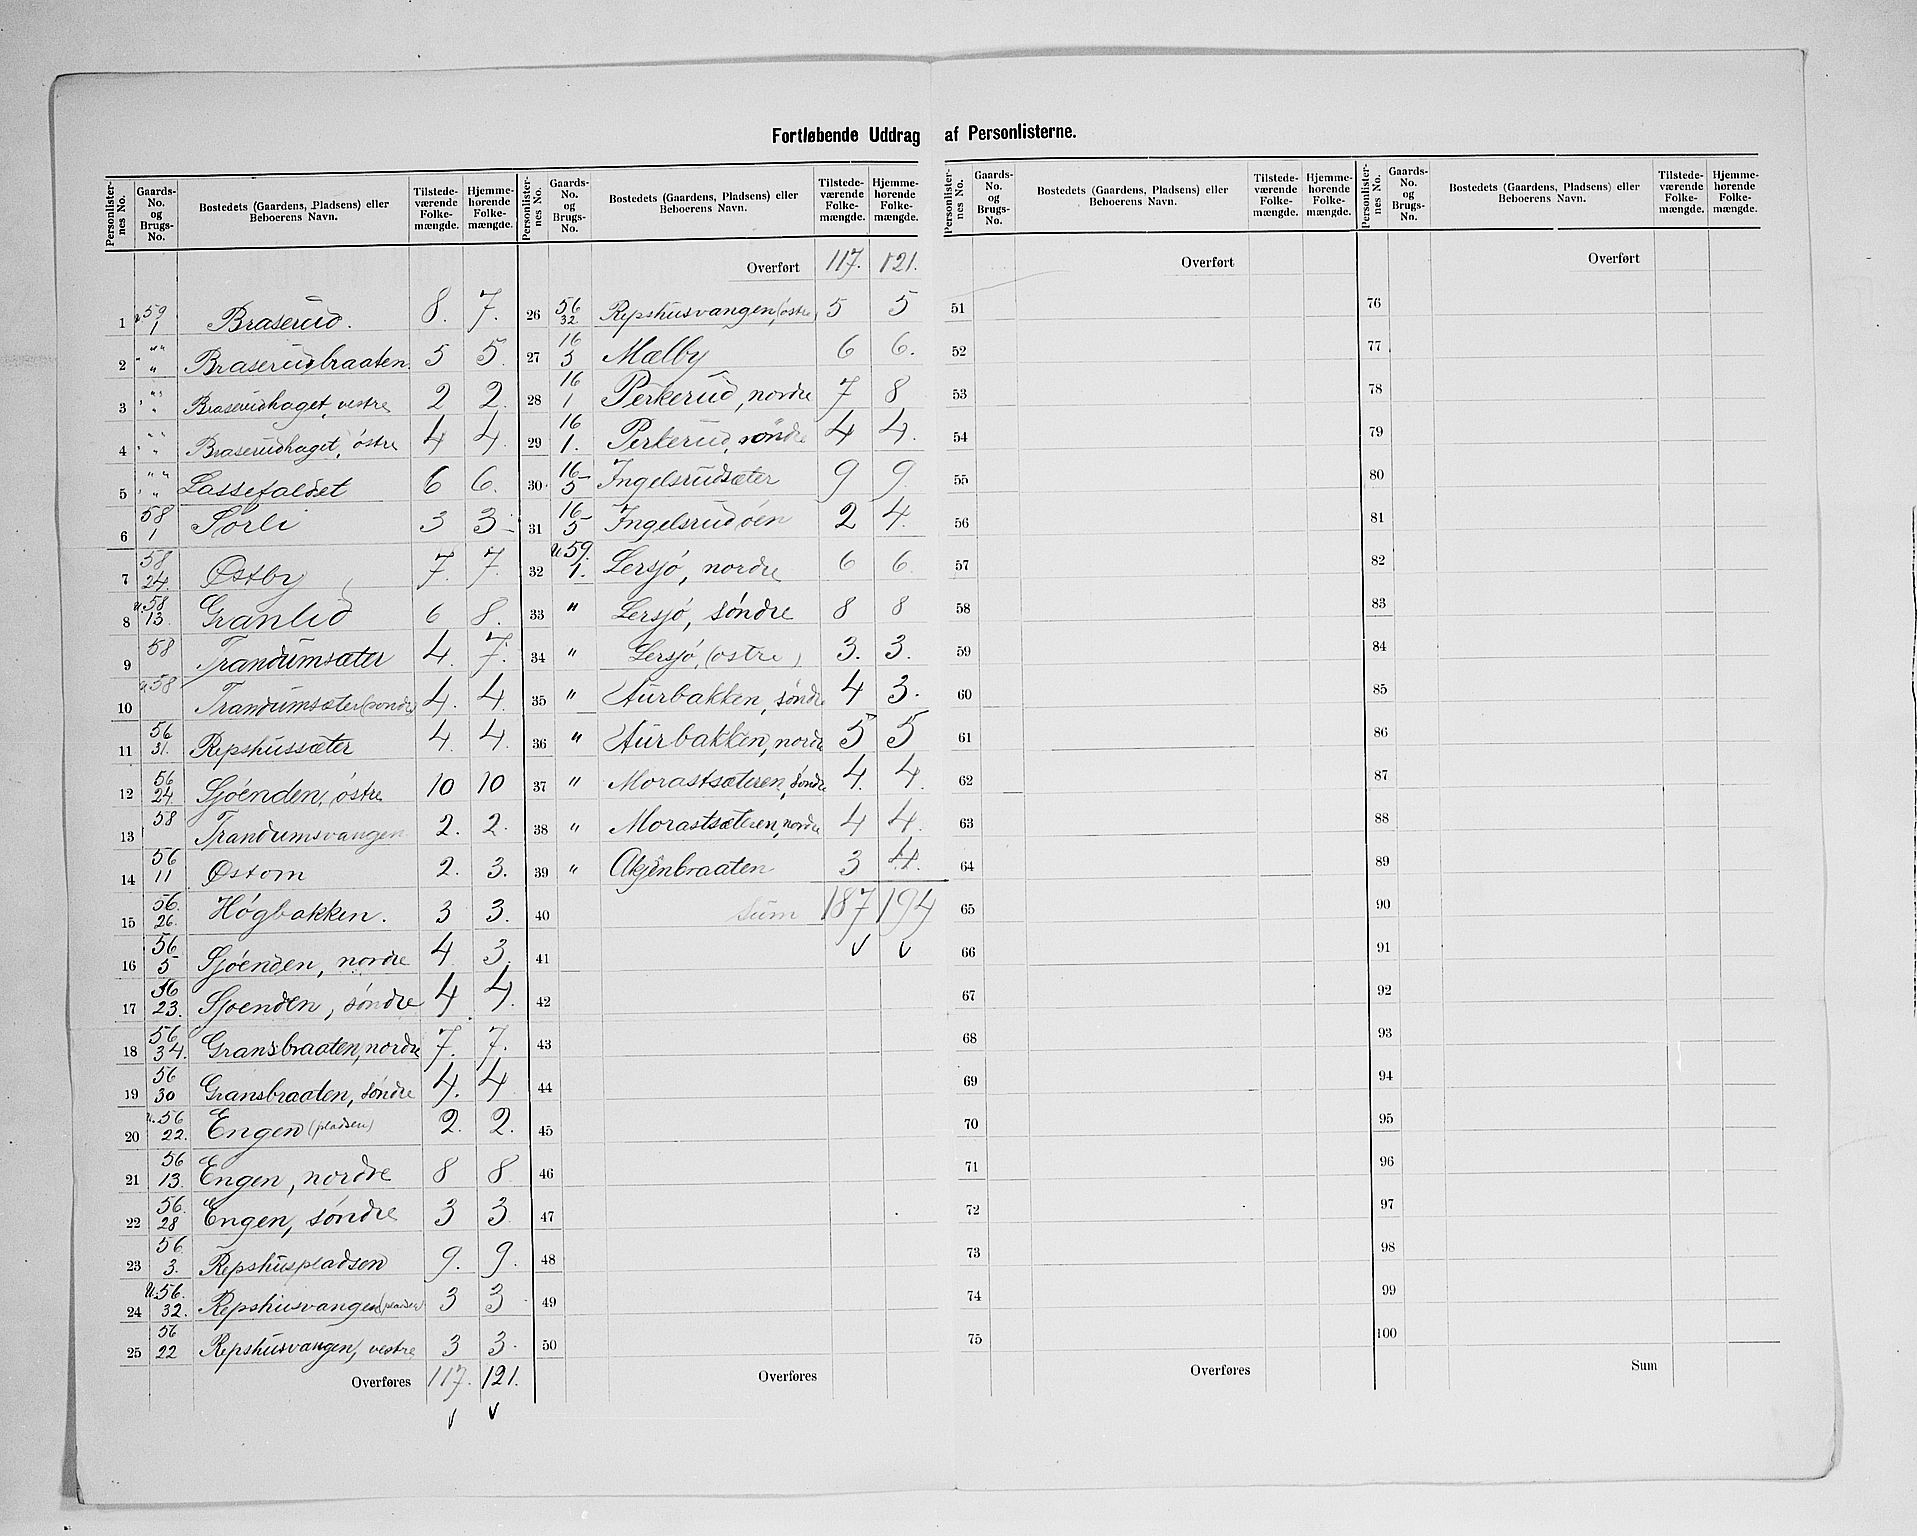 Fortløbende Uddrag af Personlisterne.
Personlister-nes No. | Gaards-No. og Brugs-No. | Bostedets (Gaardens, Pladsens) eller Beboerens Navn. | Tilstede-værende Folke-mængde. | Hjemme-hørende Folke-mængde.
1 | u 59/1 | Braserud. | 8. | 7.
2 | " " | Braserudbraaten | 5 | 5.
3 | " " | Braserudhaget, vestre | 2 | 2.
4 | " " | Braserudhaget, østre | 4 | 4.
5 | " " | Lassefaldet | 6 | 6.
6 | 58/1 | Sørli | 3 | 3
7 | 58/24 | Østby | 7. | 7.
8 | u 58/13. | Granlid | 6 | 8.
9 | 58 | Trandumsæter | 4. | 7.
10 | u 58 | Trandumsæter (søndre) | 4. | 4.
11 | 56/31. | Repshussæter | 4. | 4.
12 | 56/24. | Sjøenden, østre | 10 | 10
13 | 58 | Trandumsvangen | 2. | 2.
14 | 56/11 | Østom | 2. | 3.
15 | 56./26. | Høgbakken. | 3 | 3.
16 | 56./5 | Sjøenden, nordre | 4. | 3.
17 | 56/23. | Sjøenden, søndre | 4 | 4.
18 | 56/34. | Gransbraaten, nordre | 7. | 7.
19 | 56/30 | Gransbraaten, søndre | 4. | 4
20 | u. 56/22. | Engen (pladsen) | 2. | 2.
21 | 56/13. | Engen, nordre | 8 | 8
22 | 56./28 | Engen, søndre | 3 | 3
23 | 56./3. | Repshuspladsen | 9. | 9.
24 | U. 56./32. | Repshusvangen (pladsen) | 3 | 3
25 | 56/22 | Repshusvangen, vestre | 3 | 3.
Overføres | 117. | 121.
✓ ✓
Personlister-nes No. | Gaards-No. og Brugs-No. | Bostedets (Gaardens, Pladsens) eller Beboerens Navn. | Tilstede-værende Folke-mængde. | Hjemme-hørende Folke-mængde.
Overført | 117. | 121.
26 | 56/32. | Repshusvangen, (østre) | 5 | 5
27 | 16/5 | Mælby | 6 | 6.
28 | 16/1 | Perkerud, nordre | 7 | 8
29 | 16/1. | Perkerud, søndre | 4 | 4.
30 | 16/5 | Ingelsrudsæter | 9 | 9.
31 | 16/5 | Ingelsrudøen | 2 | 4.
32 | U 59./1. | Lersjø, nordre | 6 | 6.
33 | " | Lersjø, søndre | 8 | 8
34 | " | Lersjø, (østre) | 3. | 3.
35 | " | Aurbakken, søndre | 4 | 3.
36 | " | Aurbakken, nordre | 5 | 5
37 | " | Morastsæteren, søndre | 4. | 4.
38 | " | Morastsæteren, nordre | 4 | 4.
39 | " | braaten | 3 | 4.
40 | Sum | 187 | 194
✓ ✓
41
42
43
44
45
46
47
48
49
50
Overføres
Personlister-nes No. | Gaards-No. og Brugs-No. | Bostedets (Gaardens, Pladsens) eller Beboerens Navn. | Tilstede-værende Folke-mængde. | Hjemme-hørende Folke-mængde.
Overført
51
52
53
54
55
56
57
58
59
60
61
62
63
64
65
66
67
68
69
70
71
72
73
74
75
Overføres
Personlister-nes No. | Gaards-No. og Brugs-No. | Bostedets (Gaardens, Pladsens) eller Beboerens Navn. | Tilstede-værende Folke-mængde. | Hjemme-hørende Folke-mængde.
Overført
76
77
78
79
80
81
82
83
84
85
86
87
88
89
90
91
92
93
94
95
96
97
98
99
100
Sum